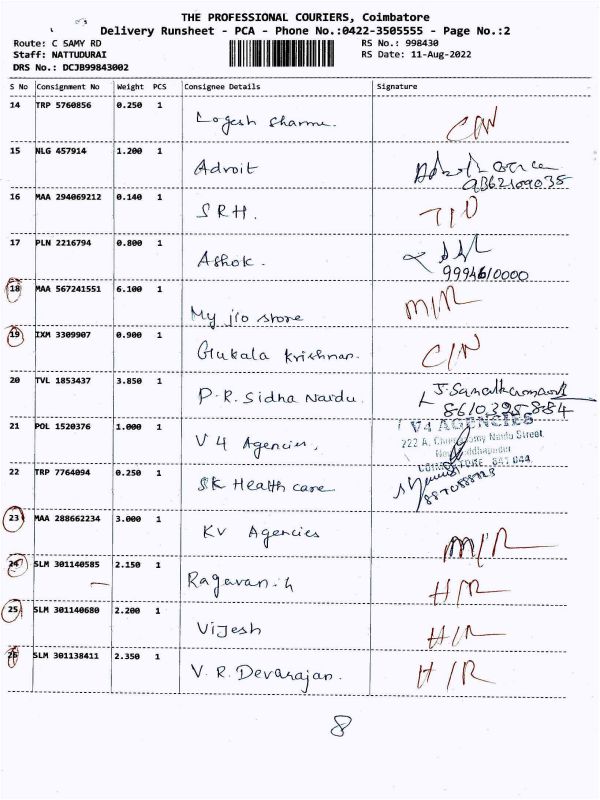 THE PROFESSIONAL COURIERS, Coimbatore
Delivery Runsheet - PCA - Phone No.:0422-3505555 - Page No.:2
Route: C SAMY RD RS No.: 998430
Staff: NATTUDURAI RS Date: 11-Aug-2022
DRS No.: DCJB99843002
S No Consignment No Weight PCS Consignee Details Signature
14 TRP 5760856 0.250 1 Logesh sharma.
15 NLG 457914 1.200 1 Adroit
9362109035
16 MAA 294069212 0.140 1 SRH.
17 PLN 2216794 0.800 1 Ashok.
9994610000
18 MAA 567241551 6.100 1 My jio store M/R
19 IXM 3309907 0.900 1 Krishnan. C/N
20 TVL 1853437 3.850 1 P.R. Sidha Naidu.
8610395884
21 POL 1520376 1.000 1 V4 Agencies, V4 AGENCIES
222 A, Naidu Street,
22 TRP 7764094 0.250 1 SK Health care
23 MAA 288662234 3.000 1 KV Agencies M/R
24 SLM 301140585 2.150 1 Ragavan.G H/R
25 SLM 301140680 2.200 1 Vijesh H/R
26 SLM 301138411 2.350 1 V.R. Devarajan. H/R
8